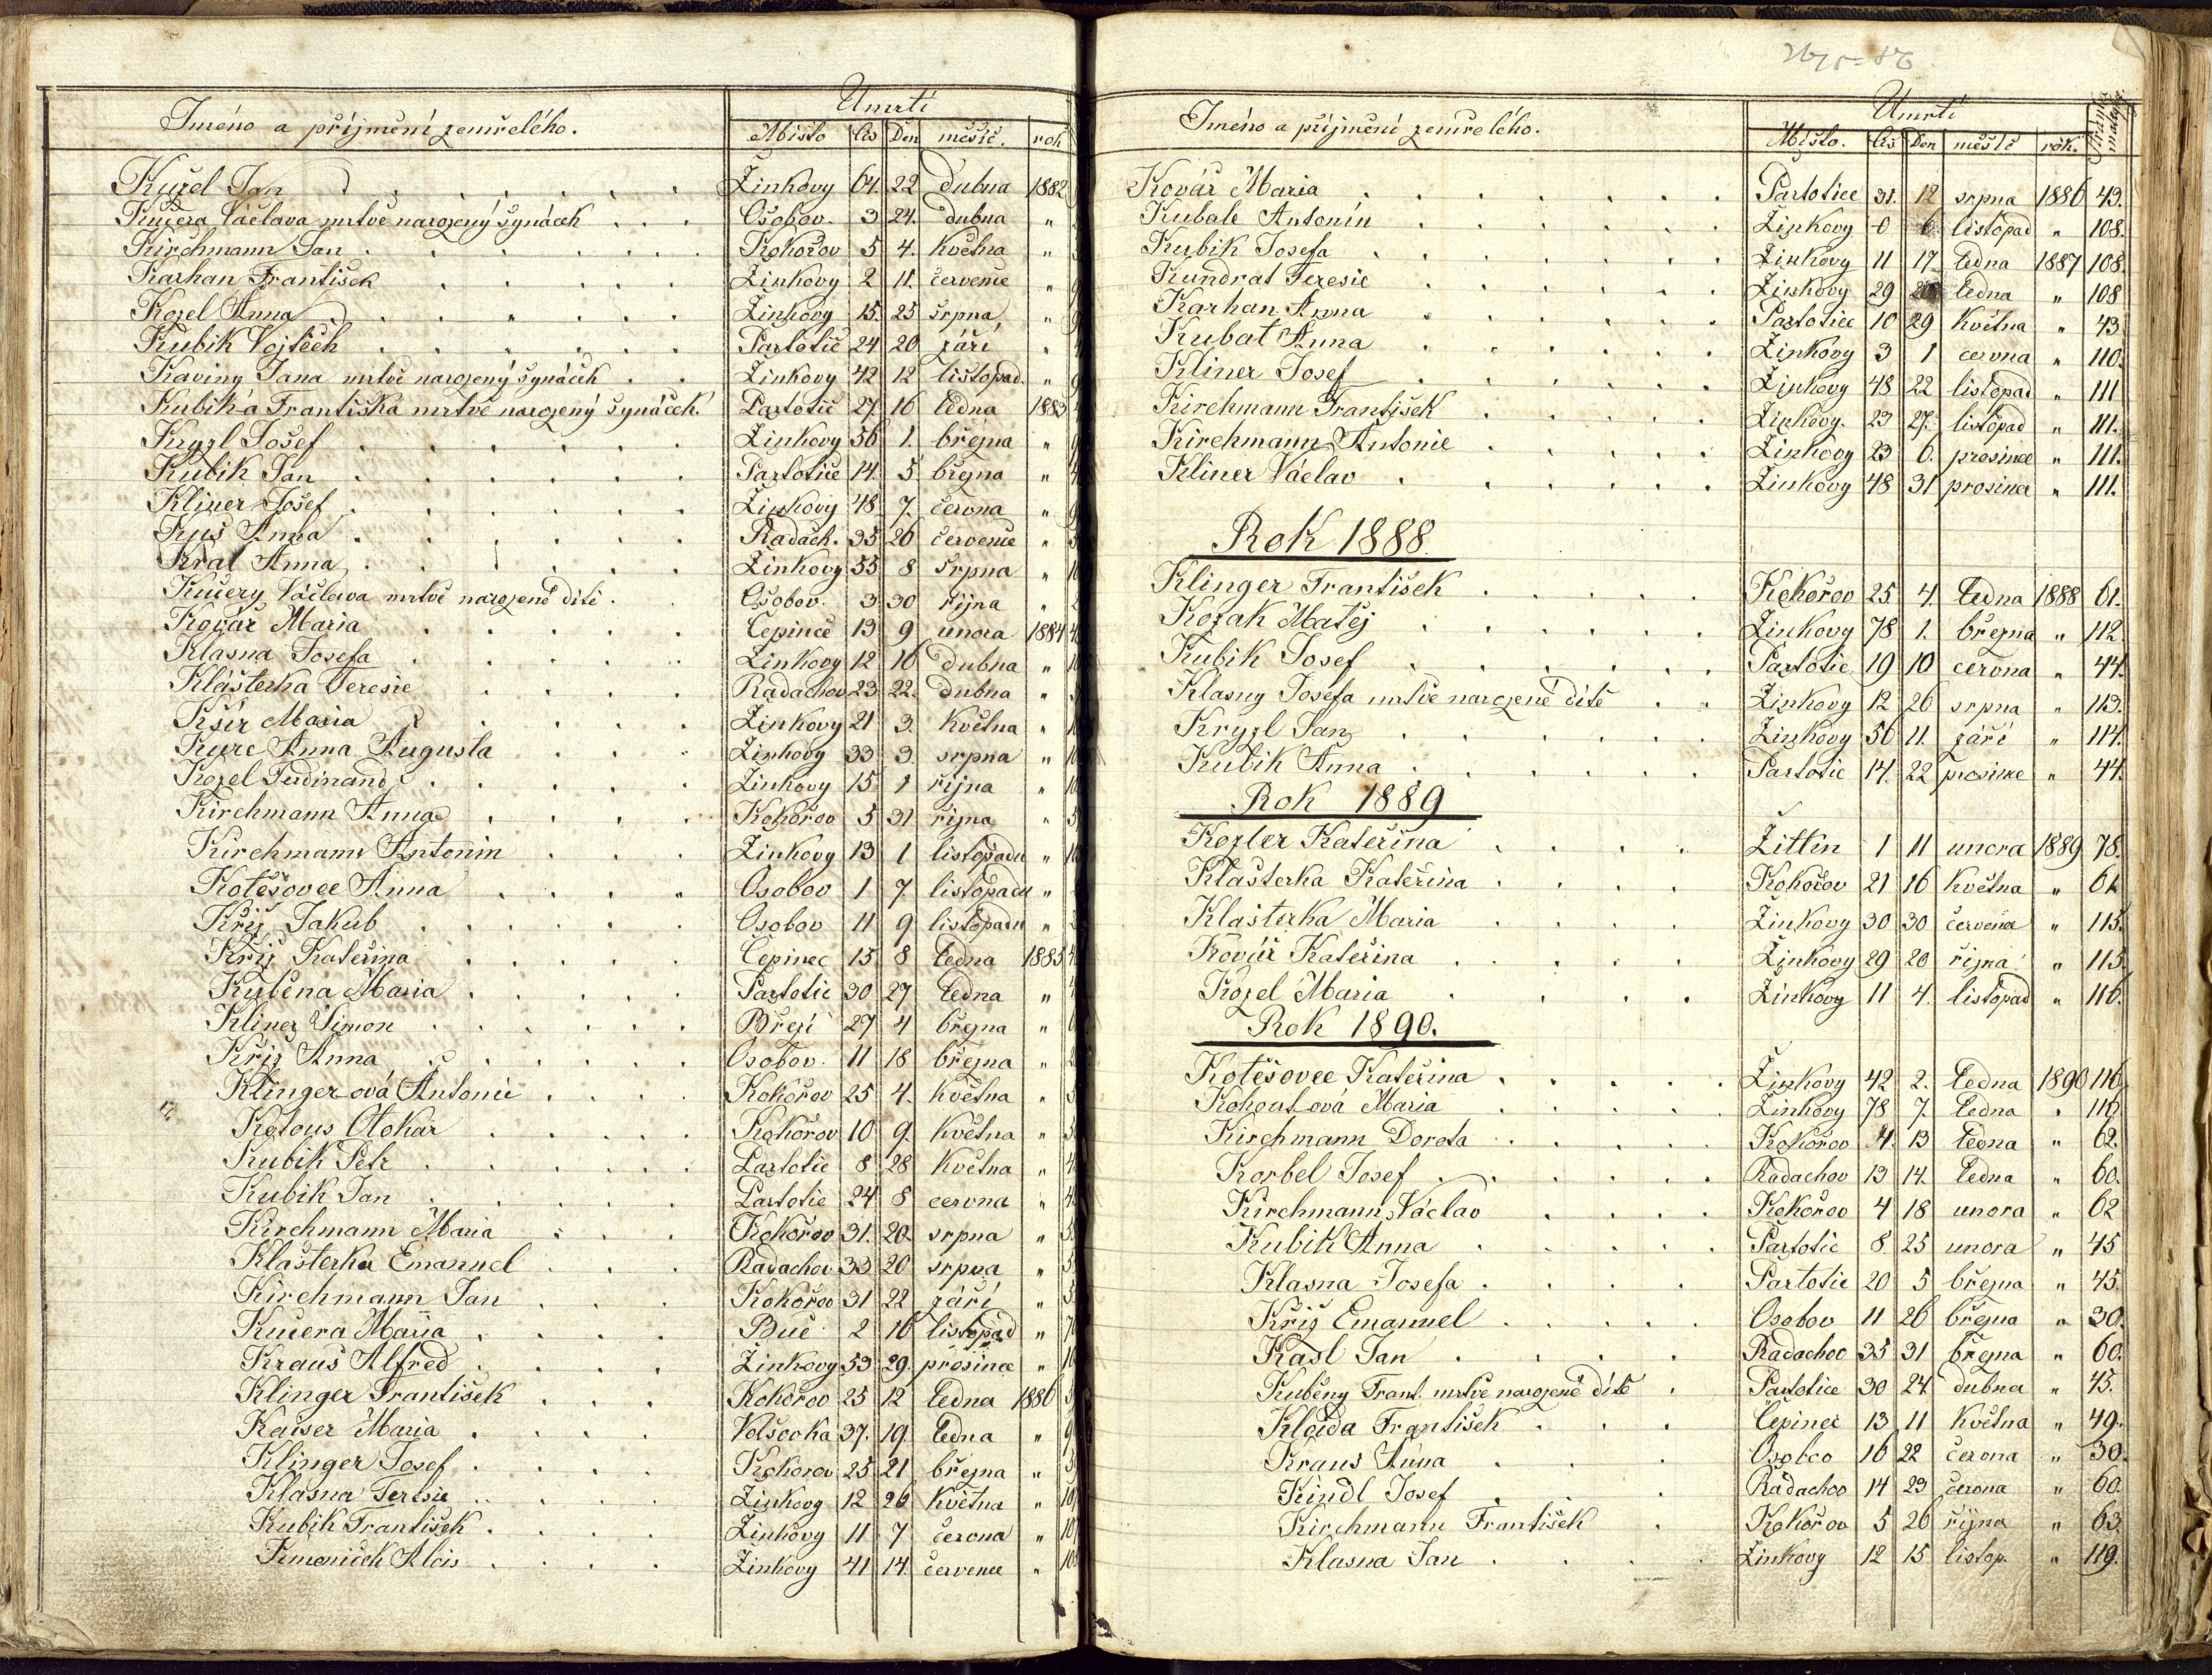 Jméno a příjmení zemřelého.
Úmrtí
Místo čís Den měsíc. rok
Kužel Jan Žinkovy 64 22 Dubna 1882
Kučera Václava mrtvě narozený synáček Osobov. 3 24. dubna "
Kirchmann Jan Kokořov 5 4. Května "
Karhan František Žinkovy 2 11. červenec "
Kozel Anna Žinkovy 15. 25 srpna "
Kubik Vojtěch Partotic 24 20 září "
Kaviny Jana mrtvě narozený synáček Žinkovy 42 12 listopad. "
Kubik-a Františka mrtvě narozený synáček. Partotic 27 16 ledna 1883
Kryzl Josef Žinkovy 56 1. března "
Kubik Jan Partotice 14. 5 března "
Kliner Josef Žinkovy 48 7. června "
Anna Radach. 35 26 červenec "
Kral Anna Žinkovy 55 8 srpna "
Kučery Václava mrtvě narozené dítě Osobov. 3 30 října "
Kovář Maria Čepince 13 9 unora 1884
Klasna Josefa Žinkovy 12 16 dubna "
Klášterka Teresie Radachov 23 22. dubna "
Kšír Maria Žinkovy 21 3. Května "
Kurc Anna Augusta Žinkovy 33 3. srpna "
Kozel Ferdinand Žinkovy 15 1 října "
Kirchmann Anna Kokořov 5 31 října "
Kirchmann Antonin Žinkovy 13 1 listopadu "
Kotěšovec Anna Osobov 1 7. listopadu "
Kříž Jakub Osobov 11 9 listopadu "
Kříž Kateřina Čepinec 15 8 ledna 1885
Kuběna Maria Partotic 30 27 ledna "
Kliner Šimon Březí 27 4 března "
Kříž Anna Osobov. 11 18 března "
Klingerová Antonie Kokořov 25 4. Května "
Kotous Otokar Kokořov 10 9. Května "
Kubik Petr Partotic 8 28 Května "
Kubik Jan Partotic 24 8 cervna "
Kirchmann Maria Kokořov 31. 20. srpna "
Klašterka Emanuel Radachov 33 20 srpna "
Kirchmann Jan Kokořov 31 22 září "
Kučera Maria Buč 2 16 listopad "
Kraus Alfred Žinkovy 53 29. prosince "
Klinger František Kokořov 25 12 ledna 1886
Kaiser Maria Volšovka 37. 19 ledna "
Klinger Josef Kokorov 25 21 března "
Klasna Teresie Žinkovy 12 26 Května "
Kubik František Žinkovy 11 7 června "
Alois Žinkovy 41 14. červenec "
Jméno a příjmení zemřelého.
Úmrtí
Místo. čís Den měsíc rok.
Kovář Maria Partotice 31. 12 srpna 1886 43.
Kubale Antonín Žinkovy 0 6 listopad " 108.
Kubik Josefa Žinkovy 11 17 ledna 1887 108.
Kundrat Teresie Žinkovy 29 ledna " 108
Karhan Anna Partotice 10 29 Května " 43
Kubat Anna Žinkovy 3 1 cervna " 110.
Kliner Josef Žinkovy 48 22 listopad " 111
Kirchmann František Žinkovy. 23 27. listopad " 111.
Kirchmann Antonie Žinkovy 23 6. prosince " 111.
Kliner Václav Žinkovy 48 31 prosince " 111.
Rok 1888.
Klinger František Kokořov 25. 4. ledna 1888 61.
Kozak Matěj Žinkovy 78 1. března " 112.
Kubik Josef Partotic 19 10 cervna " 44.
Klasny Josefa mrtvě narozené dítě Žinkovy 12 26 srpna " 113.
Kryzl Jan Žinkovy 56 11. září " 114.
Kubik Anna Partotic 14. 22 prosince " 44.
Rok 1889
Kozler Kateřina Žittin 1 11 unora 1889 78.
Klášterka Kateřina Kokořov 21 16 Května " 61
Klášterka Maria Žinkovy 30 30 červena " 115.
Kovář Kateřina Žinkovy 29 20 října " 115.
Kozel Maria Žinkovy 11 4. listopad " 116.
Rok 1890.
Kotěšovec Kateřina Žinkovy 42 2. ledna 1890 116.
Kohoutová Maria Žinkovy 78 7. ledna " 116.
Kirchmann Dorota Kokořov 4. 13 ledna " 62.
Korbel Josef Radachov 13 14. ledna " 60.
Kirchmann Václav Kokořov 4 18 unora " 62
Kubik Anna Partotic 8. 25 unora " 45
Klasna Josefa Partotic 20 5 března " 45.
Kříž Emanuel Osobov 11 26 března " 30.
Kasl Jan Radachov 35 31 března " 60.
Kubeny Frant. mrtvě narozené dítě Partotice 30 24. dubna " 45.
František Čepinec 13 11 Května " 49.
Kraus Anna Osobov 16 22 června " 30.
Kindl Josef Radachov 14 23 června " 60.
Kirchmann František Kokořov 5 26 října " 63.
Klasna Jan Žinkovy 12 15 listop. " 119.